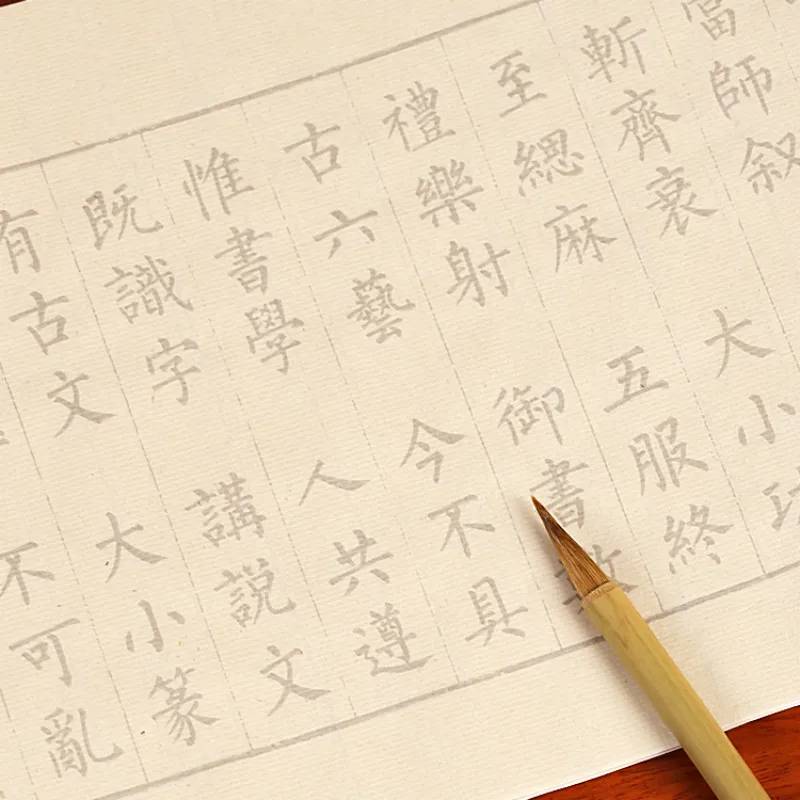 當師叙
斬齊衰 大小功
至緦麻 五服終
禮樂射 御書數
古六藝 今不具
惟書學 人共遵
既識字 講說文
有古文 大小篆
不可亂